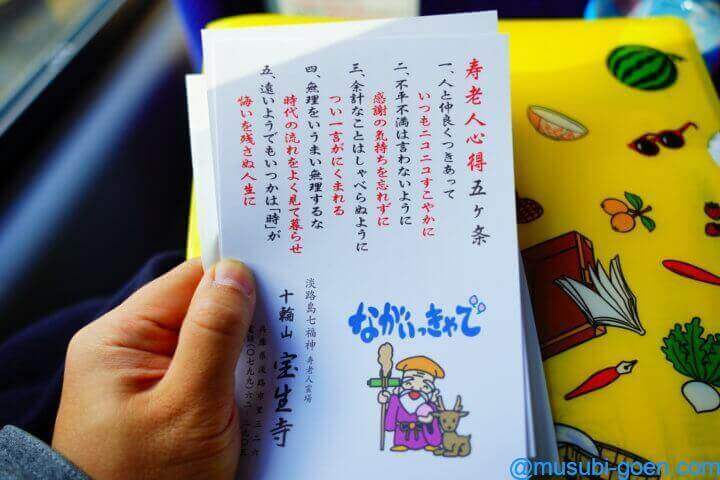 寿老人心得五ヶ条
一、人と仲良くつきあって
いつもニコニコすこやかに
二、不平不満は言わないように
感謝の気持ちを忘れずに
三、余計なことはしゃべらぬように
つい一言がにくまれる
四、無理をいうまい無理するな
時代の流れをよく見て暮らせ
五、遠いようでもいつかは「時」が
悔いを残さぬ人生に
ながいっきゃで
淡路島七福神 寿老人霊場
十輪山 宝生寺
兵庫県淡路市里三二六
電話(〇七九九)六二-
@musubi-goen.com